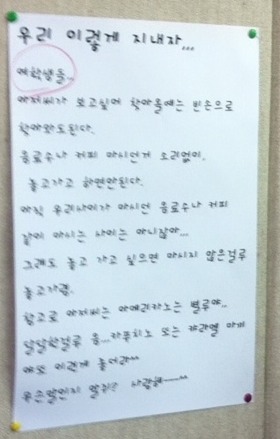 우리 이렇게 지내자...
여학생들..
아저씨가 보고싶어 찾아올때는 빈손으로
찾아와도된다.
음료수나 커피 마시던거 소리없이.
놓고가고 하면안된다.
아직 우리사이가 마시던 음료수나 커피
같이 마시는 사이는 아니잖아...
그래도 놓고 가고 싶으면 마시지 않은걸루
놓고가렴.
참고로 아저씨는 아메리카노는 별루야..
달달한걸루 음...카푸치노 또는 카라멜 마끼
애또 이렇게 놓어라^^
무슨말인지 알쥐? 사랑해~~^^